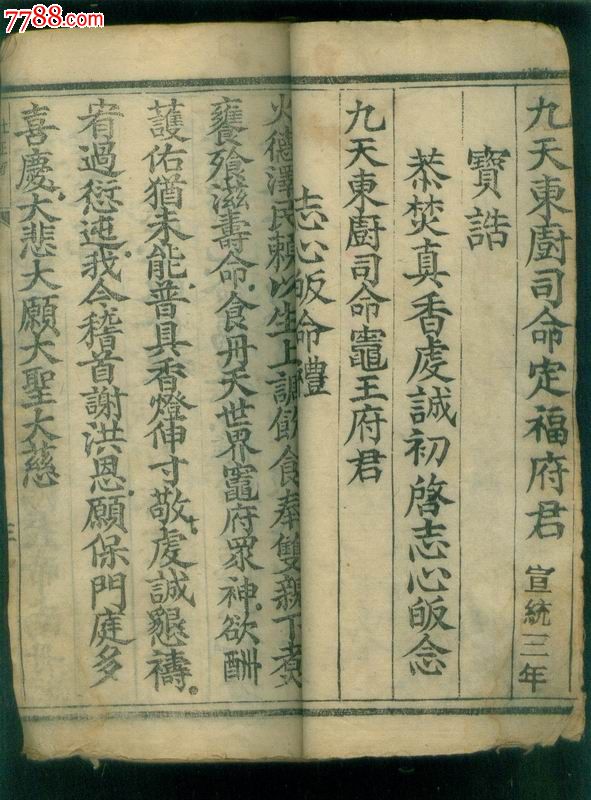 7788.com
九天東廚司命定福府君 宣統三年
寶誥
恭焚真香虔誠初啓志心皈念
九天東廚司命竈王府君
志心皈命禮
火德澤民賴以生上調飲食奉雙親下煮
饔飱滋壽命食丹天世界竈府眾神欲酬
護佑猶未能普具香燈伸寸敬虔誠懇禱
宥過愆迍我今稽首謝洪恩願保門庭多
喜慶大悲大願大聖大慈